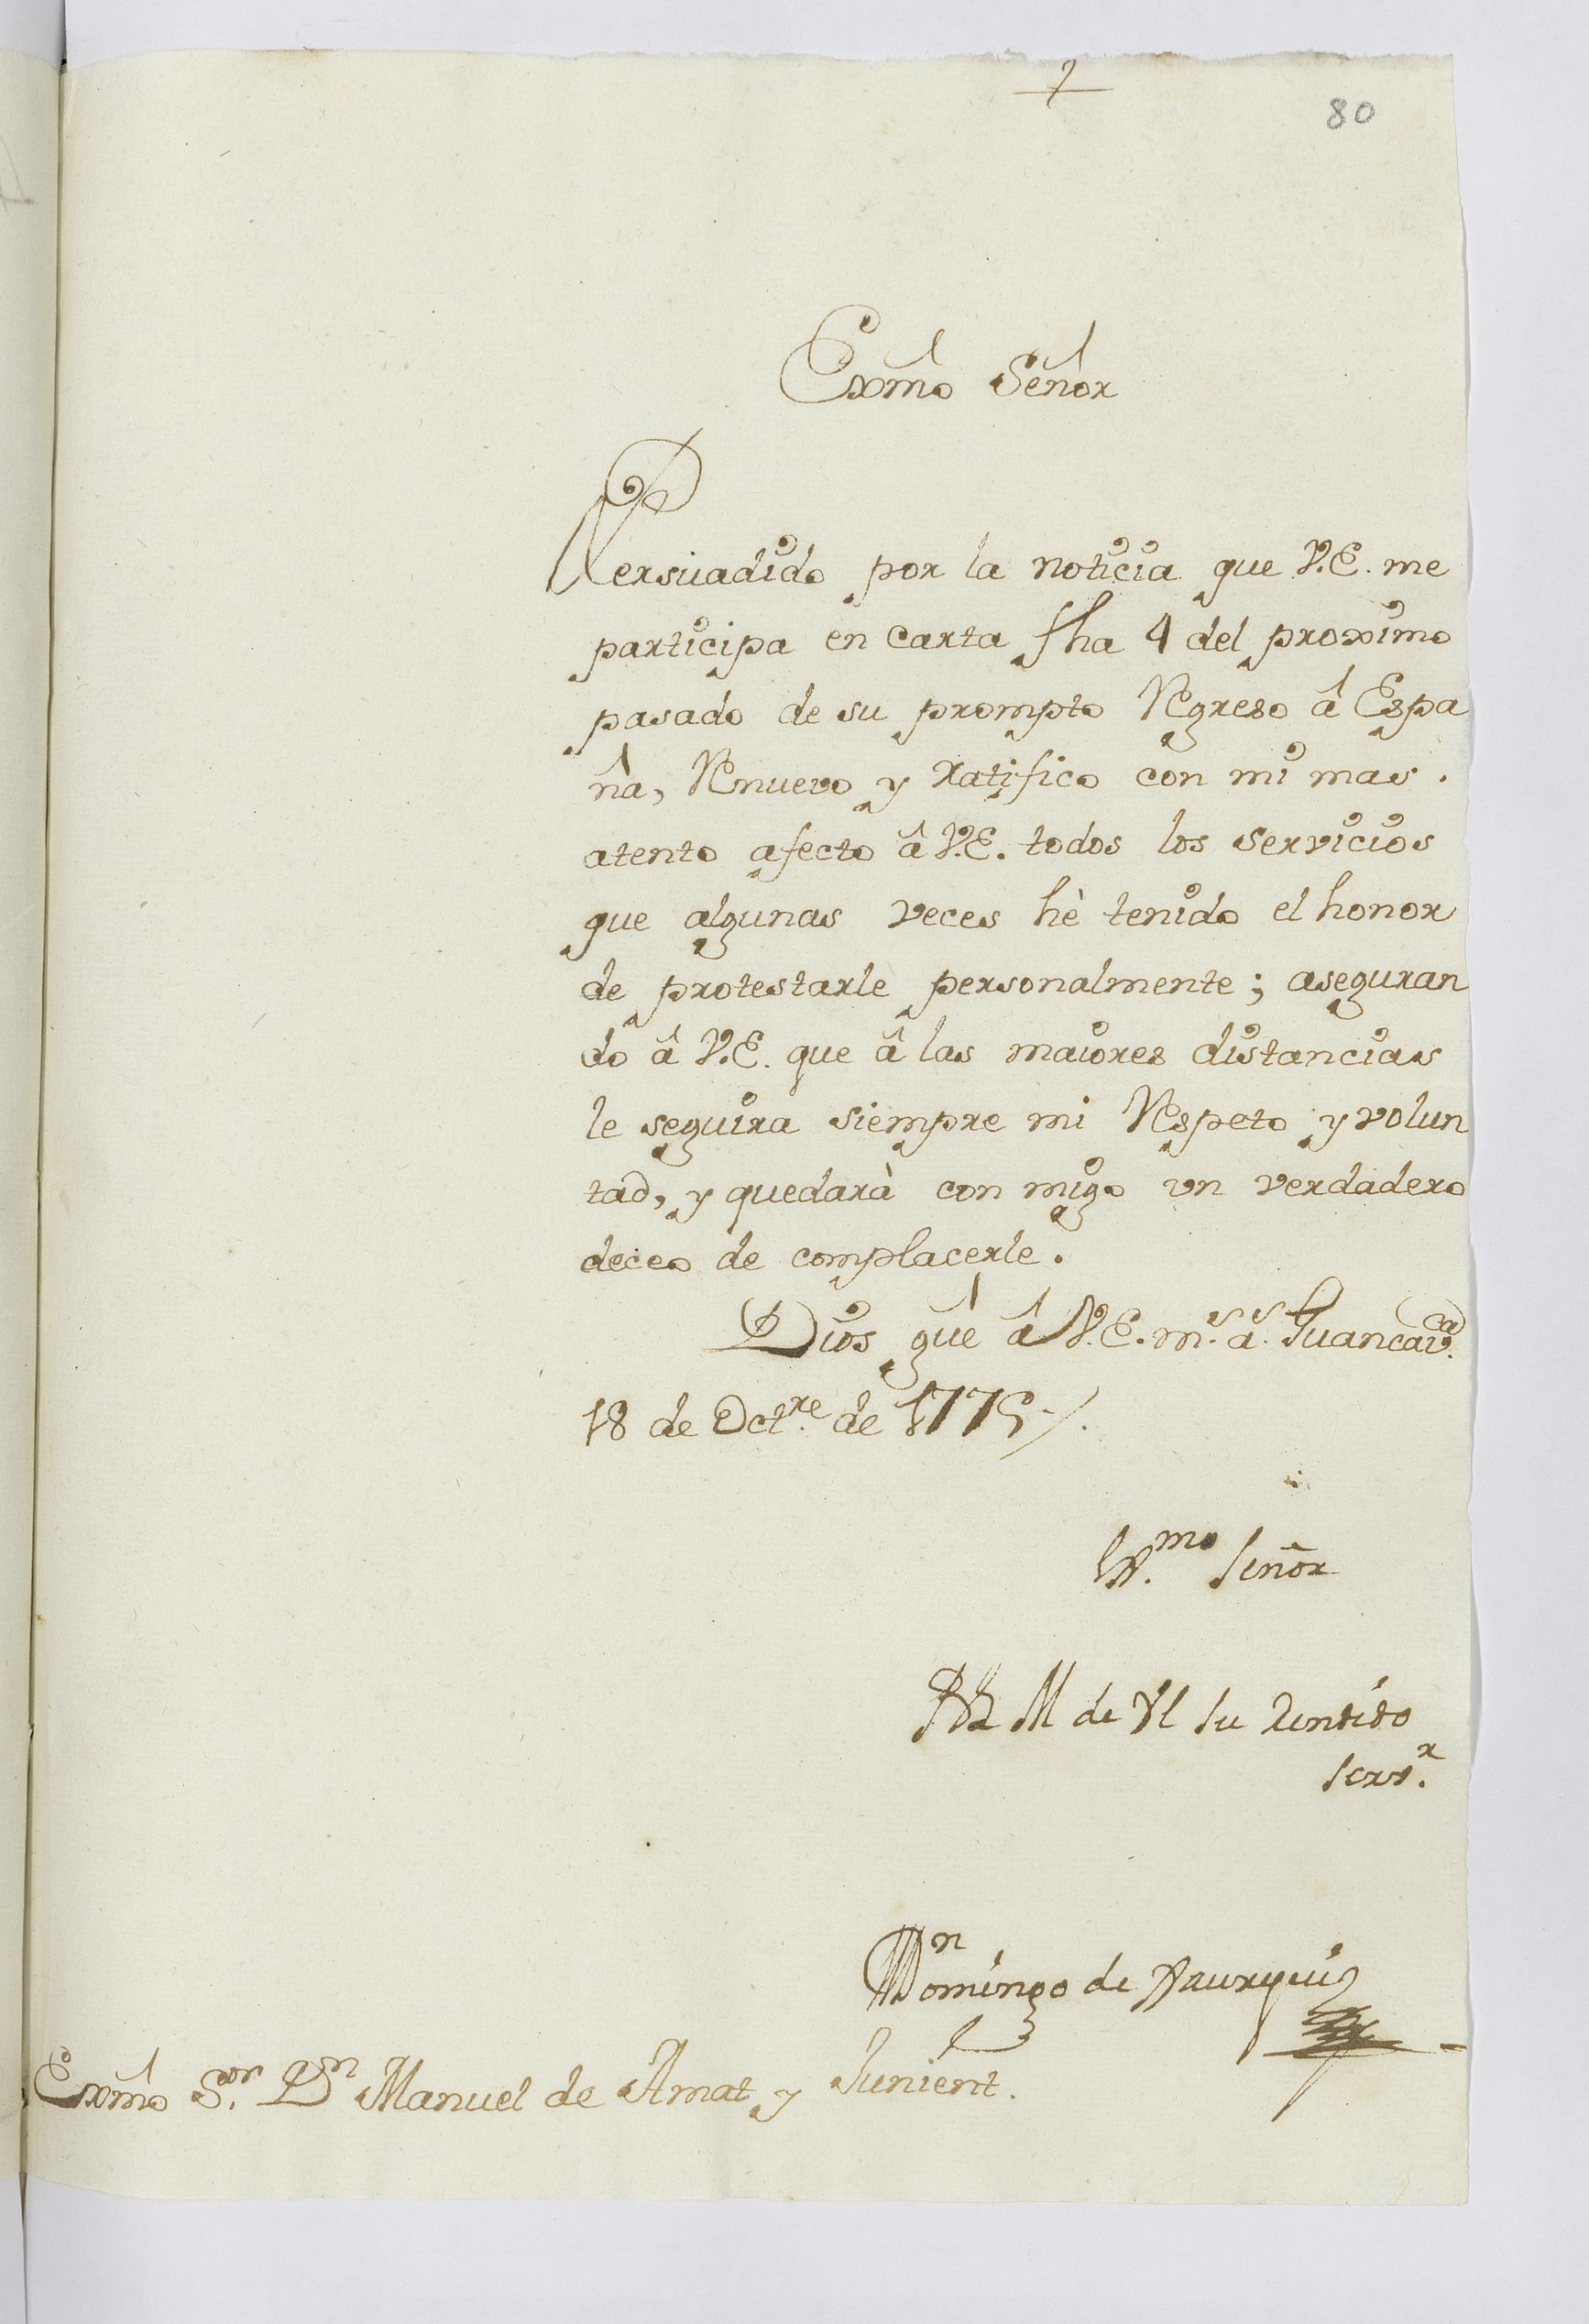 80
Exmo Señor
Persuadido por la noticia que V.E. me
participa en carta fha 4 del proximo
pasado de su prompto Regreso â Espa
ña, Renuevo y ratifico con mi mas
atento afecto â V.E. todos los servicios
que algunas veces hè tenido el honor
de protestarle personalmente; aseguran
do â V.E. que â las maiores distancias
le seguira siempre mi Respeto y volun
tad, y quedarà con migo un verdadero
deceo de complacerle.
Dios gue â V.E. ms. as. Juancava.
18 de Octre. de 1775
Exmo. Señor
BLM de VE su rendido
servr.
Domingo de
Exmo Sor. Dn Manuel de Amat y Junient.